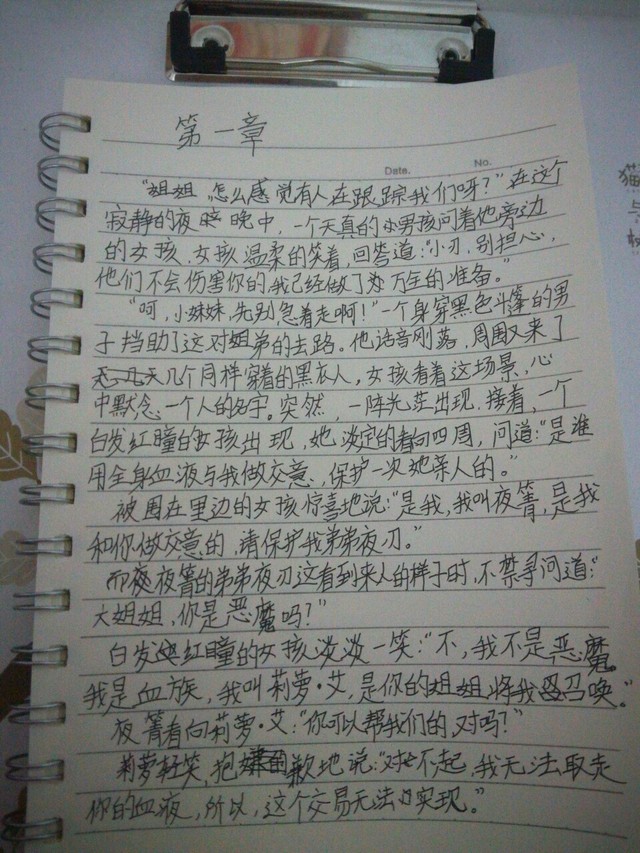 第一章
Date.
No.
“姐姐,怎么感觉有人在跟踪我们呀?”在这个
寂静的夜晚中,一个天真的小男孩问着他旁边
的女孩,女孩温柔的笑着,回答道:“小刃,别担心,
他们不会伤害你的,我已经做了万全的准备。”
“呵,小妹妹,先别急着走啊!”一个身穿黑色斗篷的男
子挡助了这对姐弟的去路。他话音刚落,周围又来了
几个同样穿着的黑衣人,女孩看着这场景,心
中默念一个人的名字。突然,一阵光茫出现,接着,一个
白发红瞳的女孩出现,她淡定的看向四周,问道:“是谁
用全身血液与我做交意,保护一次她亲人的。”
被围在里边的女孩惊喜地说:“是我,我叫夜箐,是我
和你做交意的,请保护我弟弟夜刃。”
而夜箐的弟弟夜刃这看到来人的样子时,不禁寻问道:“
大姐姐,你是恶魔吗?”
白发红瞳的女孩淡淡一笑:“不,我不是恶魔。
我是血族,我叫莉萝·艾,是你的姐姐将我召唤。”
夜箐看向莉萝·艾:“你可以帮我们的,对吗?”
莉萝轻笑,抱歉地说:“对不起,我无法取走
你的血液,所以,这个交易无法实现。”
猫
与